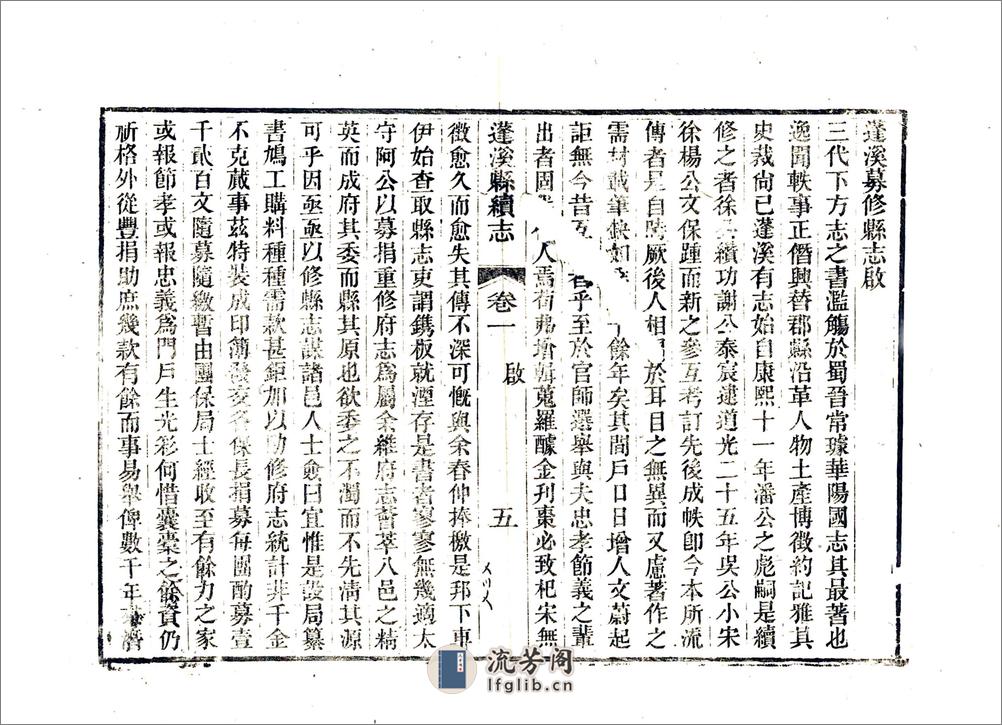 蓬溪募修縣志啟
三代下方志之書濫觴於蜀晉常璩華陽國志其最著也
逸聞軼事正僭興替郡縣沿革人物土產博徵約記雅其
史裁尙已蓬溪有志始自康熙十一年潘公之彪嗣是續
修之者徐公纘功謝公泰宸逮道光二十五年吳公小宋
徐楊公文保踵而新之參互考訂先後成帙卽今本所流
傳者是自時厥後人相於耳目之無異而又慮著作之
需材載筆缺如餘年矣其間戶口日增人文蔚起
詎無今昔互者乎至於官師選舉與夫忠孝節義之輩
出者固人焉苟弗增輯蒐羅醵金刋棗必致杞宋無
蓬溪縣續志 卷一 啟 五
徵愈久而愈失其傳不深可慨與余春仲捧檄是邦下車
伊始查取縣志吏謂鐫板就湮存是書者寥寥無幾適太
守阿公以募捐重修府志爲屬余維府志薈萃八邑之精
英而成府其委而縣其原也欲委之不濁而不先淸其源
可乎因亟亟以修縣志謀諸邑人士僉曰宜惟是設局纂
書鳩工購料種種需款甚鉅加以助修府志統計非千金
不克蕆事茲特裝成印簿發交各保長捐募每團酌募壹
千貳百文隨募隨繳暫由團保局士經收至有餘力之家
或報節孝或報忠義爲門戶生光彩何惜囊橐之餘資仍
祈格外從豐捐助庶幾款有餘而事易舉俾數千年
流芳阁
lfglib.cn